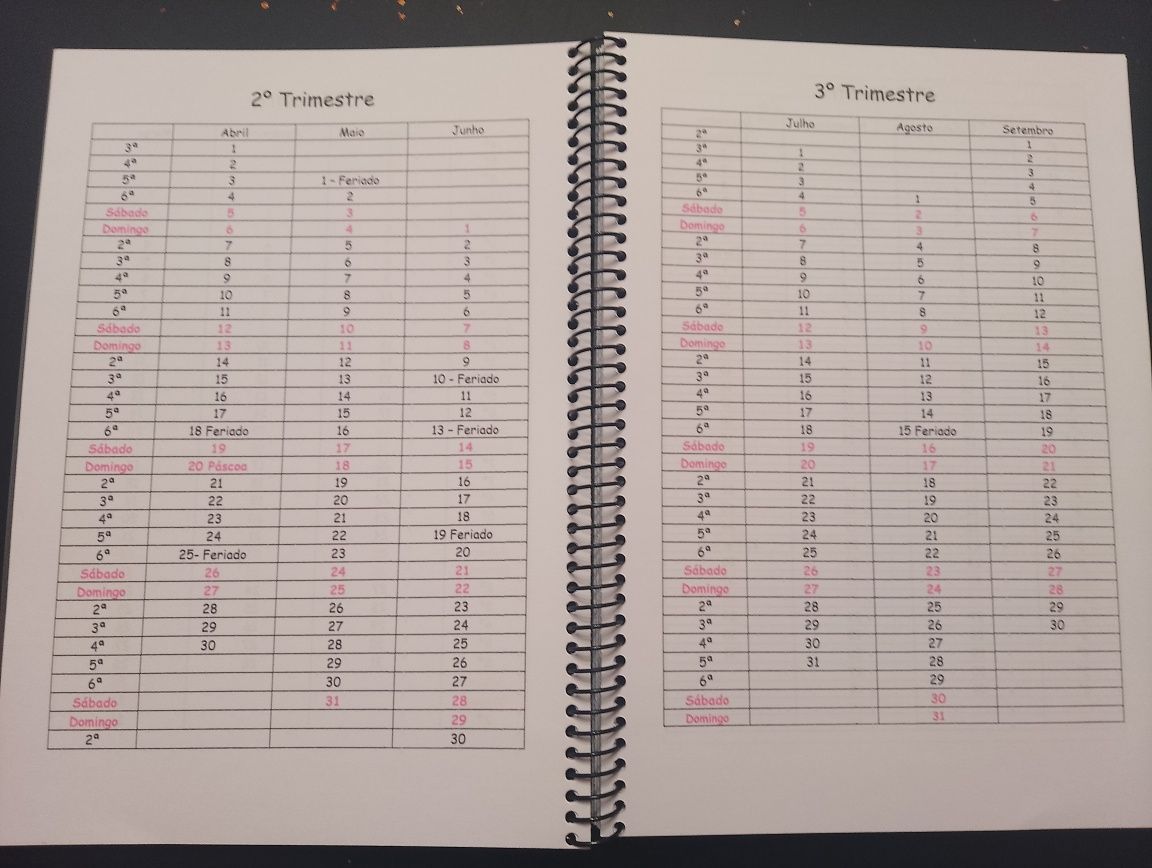 2º Trimestre
Abril Maio Junho
3ª 1
4ª 2
5ª 3 1 - Feriado
6ª 4 2
Sábado 5 3
Domingo 6 4 1
2ª 7 5 2
3ª 8 6 3
4ª 9 7 4
5ª 10 8 5
6ª 11 9 6
Sábado 12 10 7
Domingo 13 11 8
2ª 14 12 9
3ª 15 13 10 - Feriado
4ª 16 14 11
5ª 17 15 12
6ª 18 Feriado 16 13 - Feriado
Sábado 19 17 14
Domingo 20 Páscoa 18 15
2ª 21 19 16
3ª 22 20 17
4ª 23 21 18
5ª 24 22 19 Feriado
6ª 25- Feriado 23 20
Sábado 26 24 21
Domingo 27 25 22
2ª 28 26 23
3ª 29 27 24
4ª 30 28 25
5ª 29 26
6ª 30 27
Sábado 31 28
Domingo 29
2ª 30
3º Trimestre
Julho Agosto Setembro
2ª 1
3ª 1 2
4ª 2 3
5ª 3 4
6ª 4 1 5
Sábado 5 2 6
Domingo 6 3 7
2ª 7 4 8
3ª 8 5 9
4ª 9 6 10
5ª 10 7 11
6ª 11 8 12
Sábado 12 9 13
Domingo 13 10 14
2ª 14 11 15
3ª 15 12 16
4ª 16 13 17
5ª 17 14 18
6ª 18 15 Feriado 19
Sábado 19 16 20
Domingo 20 17 21
2ª 21 18 22
3ª 22 19 23
4ª 23 20 24
5ª 24 21 25
6ª 25 22 26
Sábado 26 23 27
Domingo 27 24 28
2ª 28 25 29
3ª 29 26 30
4ª 30 27
5ª 31 28
6ª 29
Sábado 30
Domingo 31